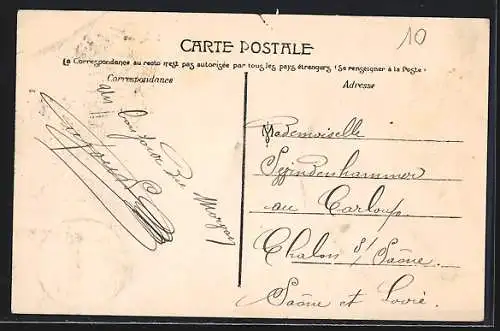 10
CARTE POSTALE
La Correspondance au recto n'est pas autorisée par tous les pays étrangers (Se renseigner à la Poste)
Correspondance
Adresse
un bonjour De Morgan
Mademoiselle
au Carloup
Chalon s/ Saône
Saône et Loire.